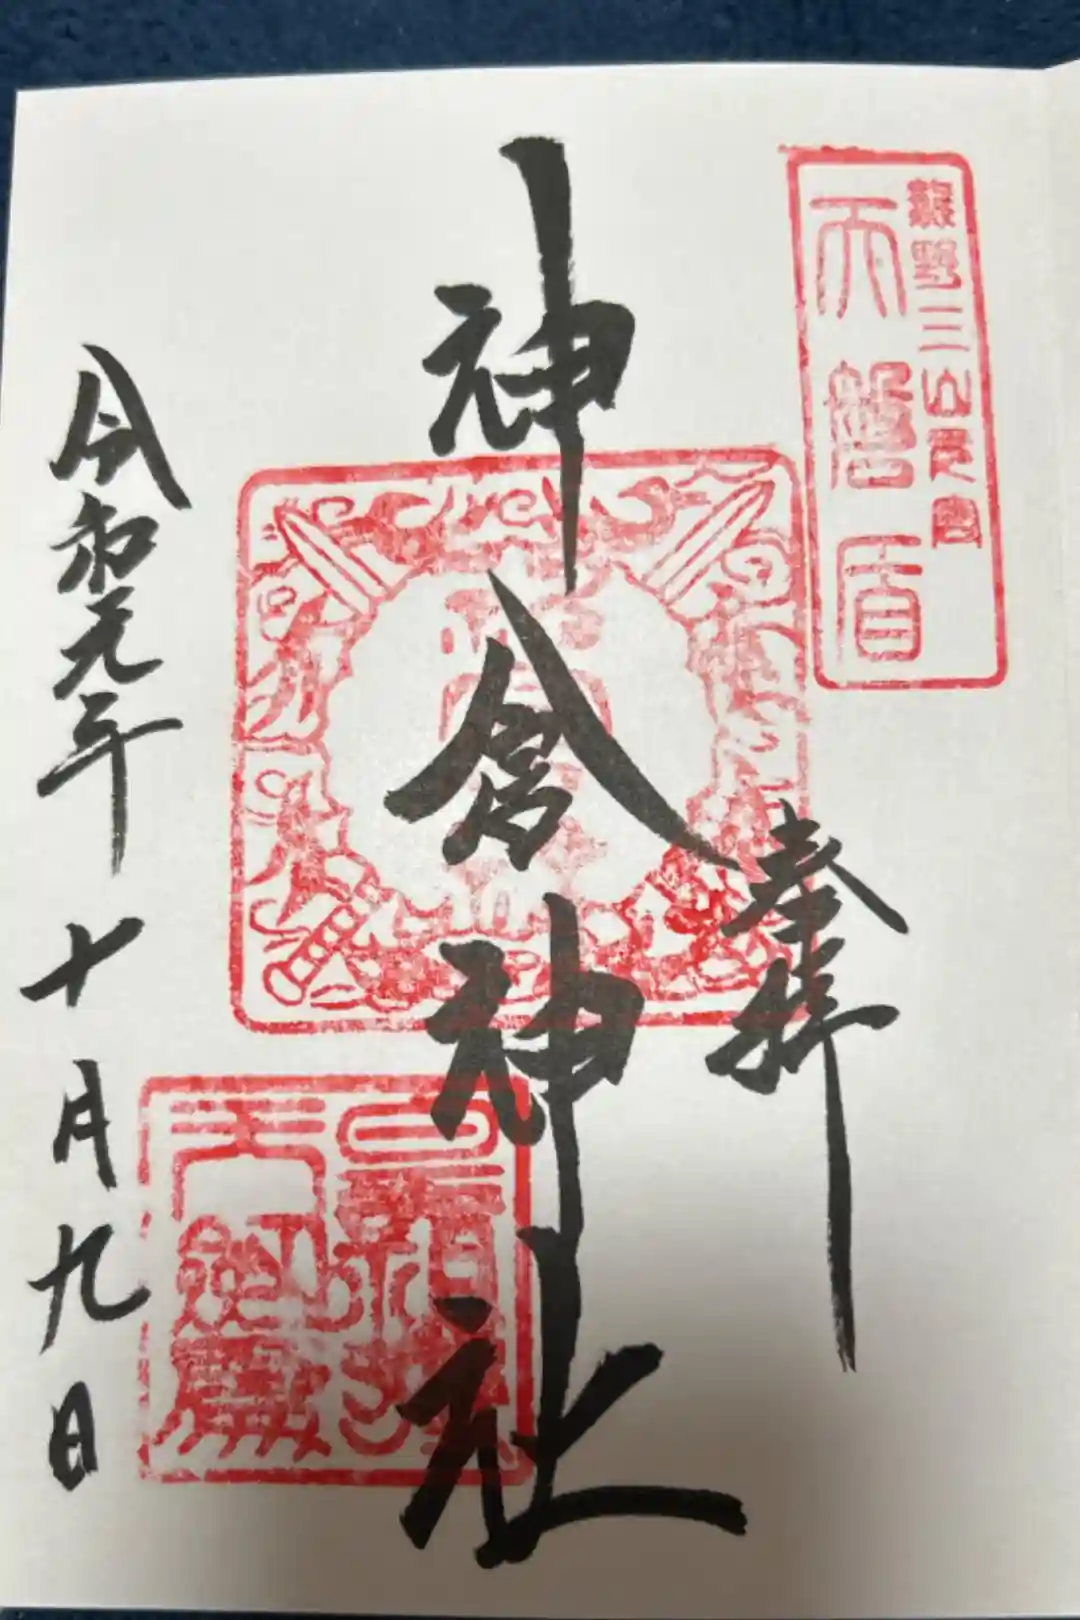 熊野三山元宮
天磐盾
奉拝
神倉神社
令和元年十月九日